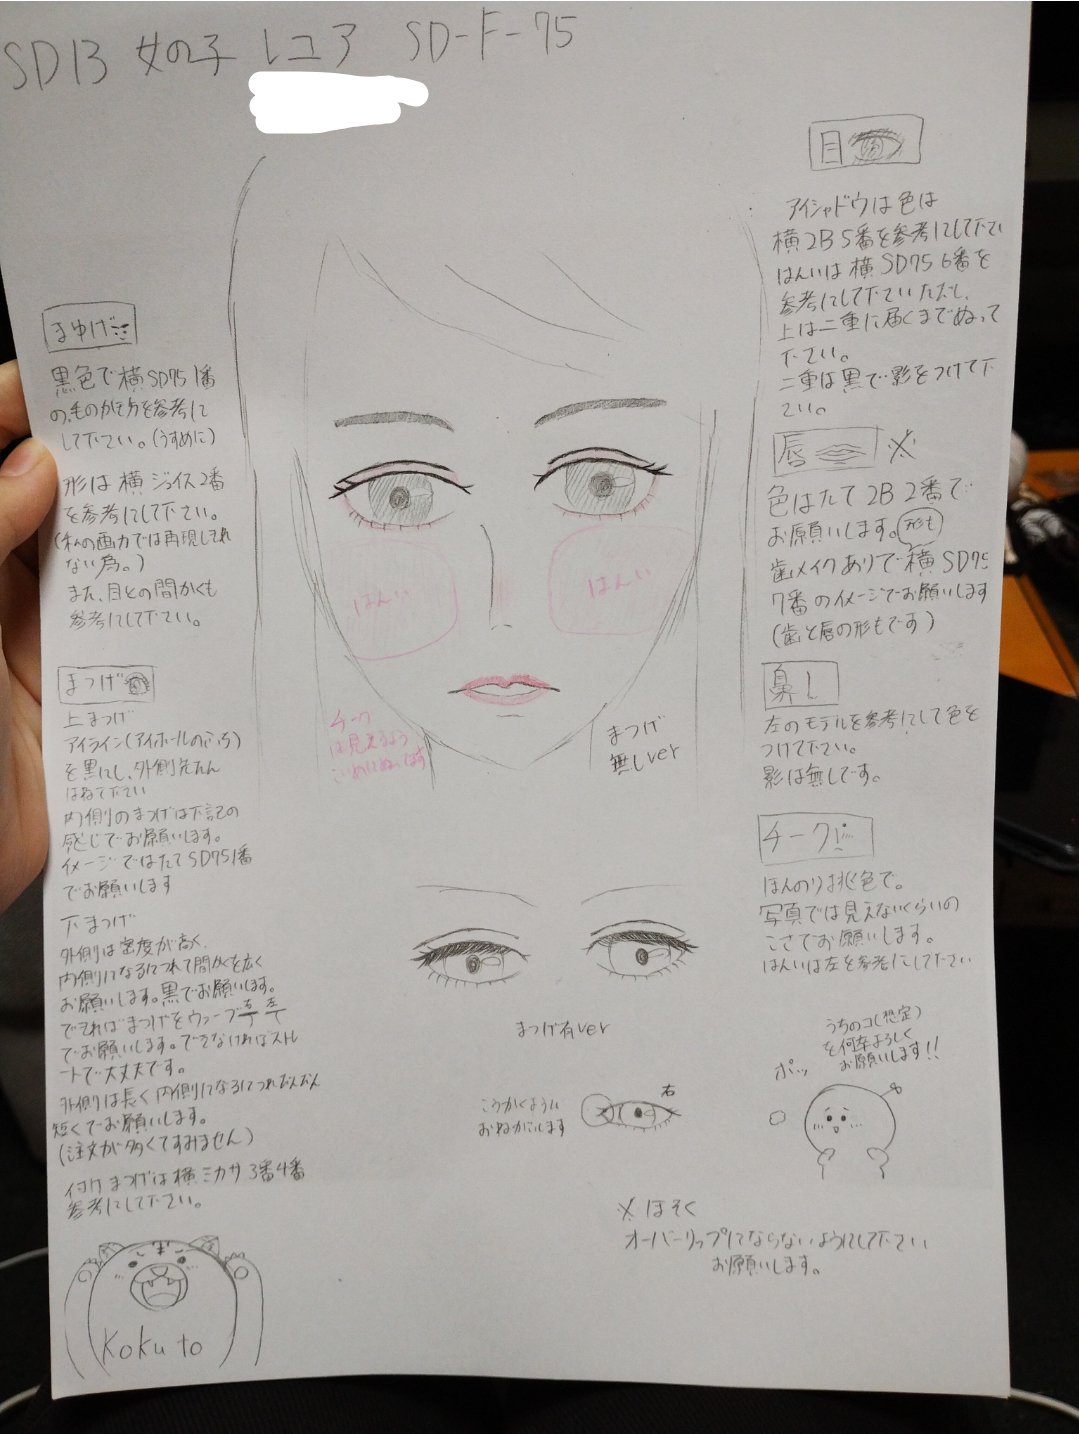 SD13 女の子 レユア SD-F-75
まゆげ
黒色で横SD75 1番
の、ものが毛方を参考に
して下さい。(うすめに)
形は横ジョイス2番
を参考にして下さい。
(私の画力では再現しきれ
ない為。)
また、目との間かくも
参考にして下さい。
まつげ
上まつげ
アイライン(アイホールのふち)
を黒にし、外側先たん
はねて下さい
内側のまつげは下記の
感じでお願いします。
イメージではたてSD75 1番
でお願いします
下まつげ
外側は密度が高く、
内側になるにつれて間かくを広く
お願いします。黒でお願いします。
できればまつげをウェーブ
でお願いします。できなければストレ
ートで大丈夫です。
外側は長く内側になるにつれだんだん
短くでお願いします。
(注文が多くてすみません)
付けまつげは横ミカサ3番4番
参考にして下さい。
Kokuto
はんい
はんい
チーク
は見えるよう
こいめにぬってます
まつげ
無しver
まつげ有ver
こうかくように
おねがいします
右
目
アイシャドウは色は
横2B 5番を参考にして下さい
はんいは横SD75 6番を
参考にして下さいただし、
上は二重に届くまでぬって
下さい。
二重は黒で影をつけて下
さい。
唇 ※
色はたて2B 2番で
お願いします。形も
歯メイクありで横SD75
7番のイメージでお願いします
(歯と唇の形もです)
鼻
左のモデルを参考にして色を
つけて下さい。
影は無しです。
チーク
ほんのり桃色で。
写真では見えないくらいの
こさでお願いします。
はんいは左を参考にして下さい
うちのコ(想定)
を何卒よろしく
お願いします!!
ポッ
※ほそく
オーバーリップにならないようにして下さい
お願いします。